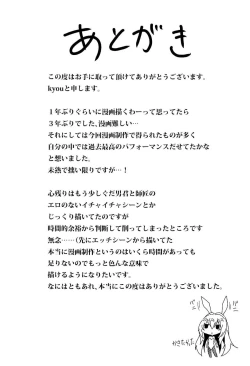 あとがき
この度はお手に取って頂けてありがとうございます。
kyouと申します。
1年ぶりぐらいに漫画描くわーって思ってたら
3年ぶりでした、漫画難しい…
それにしては今回漫画制作で得られたものが多く
自分の中では過去最高のパフォーマンスだせてたかな
と想いました。
未熟で拙い限りですが…！
心残りはもう少しぐだ男君と師匠の
エロのないイチャイチャシーンとか
じっくり描いてたのですが
時間的余裕から判断して削ってしまったところです
無念……（先にエッチシーンから描いてた
本当に漫画制作というのはいくら時間があっても
足りないのでもっと色んな意味で
描けるようになりたいです。
なにはともあれ、本当にこの度はありがとうございました。